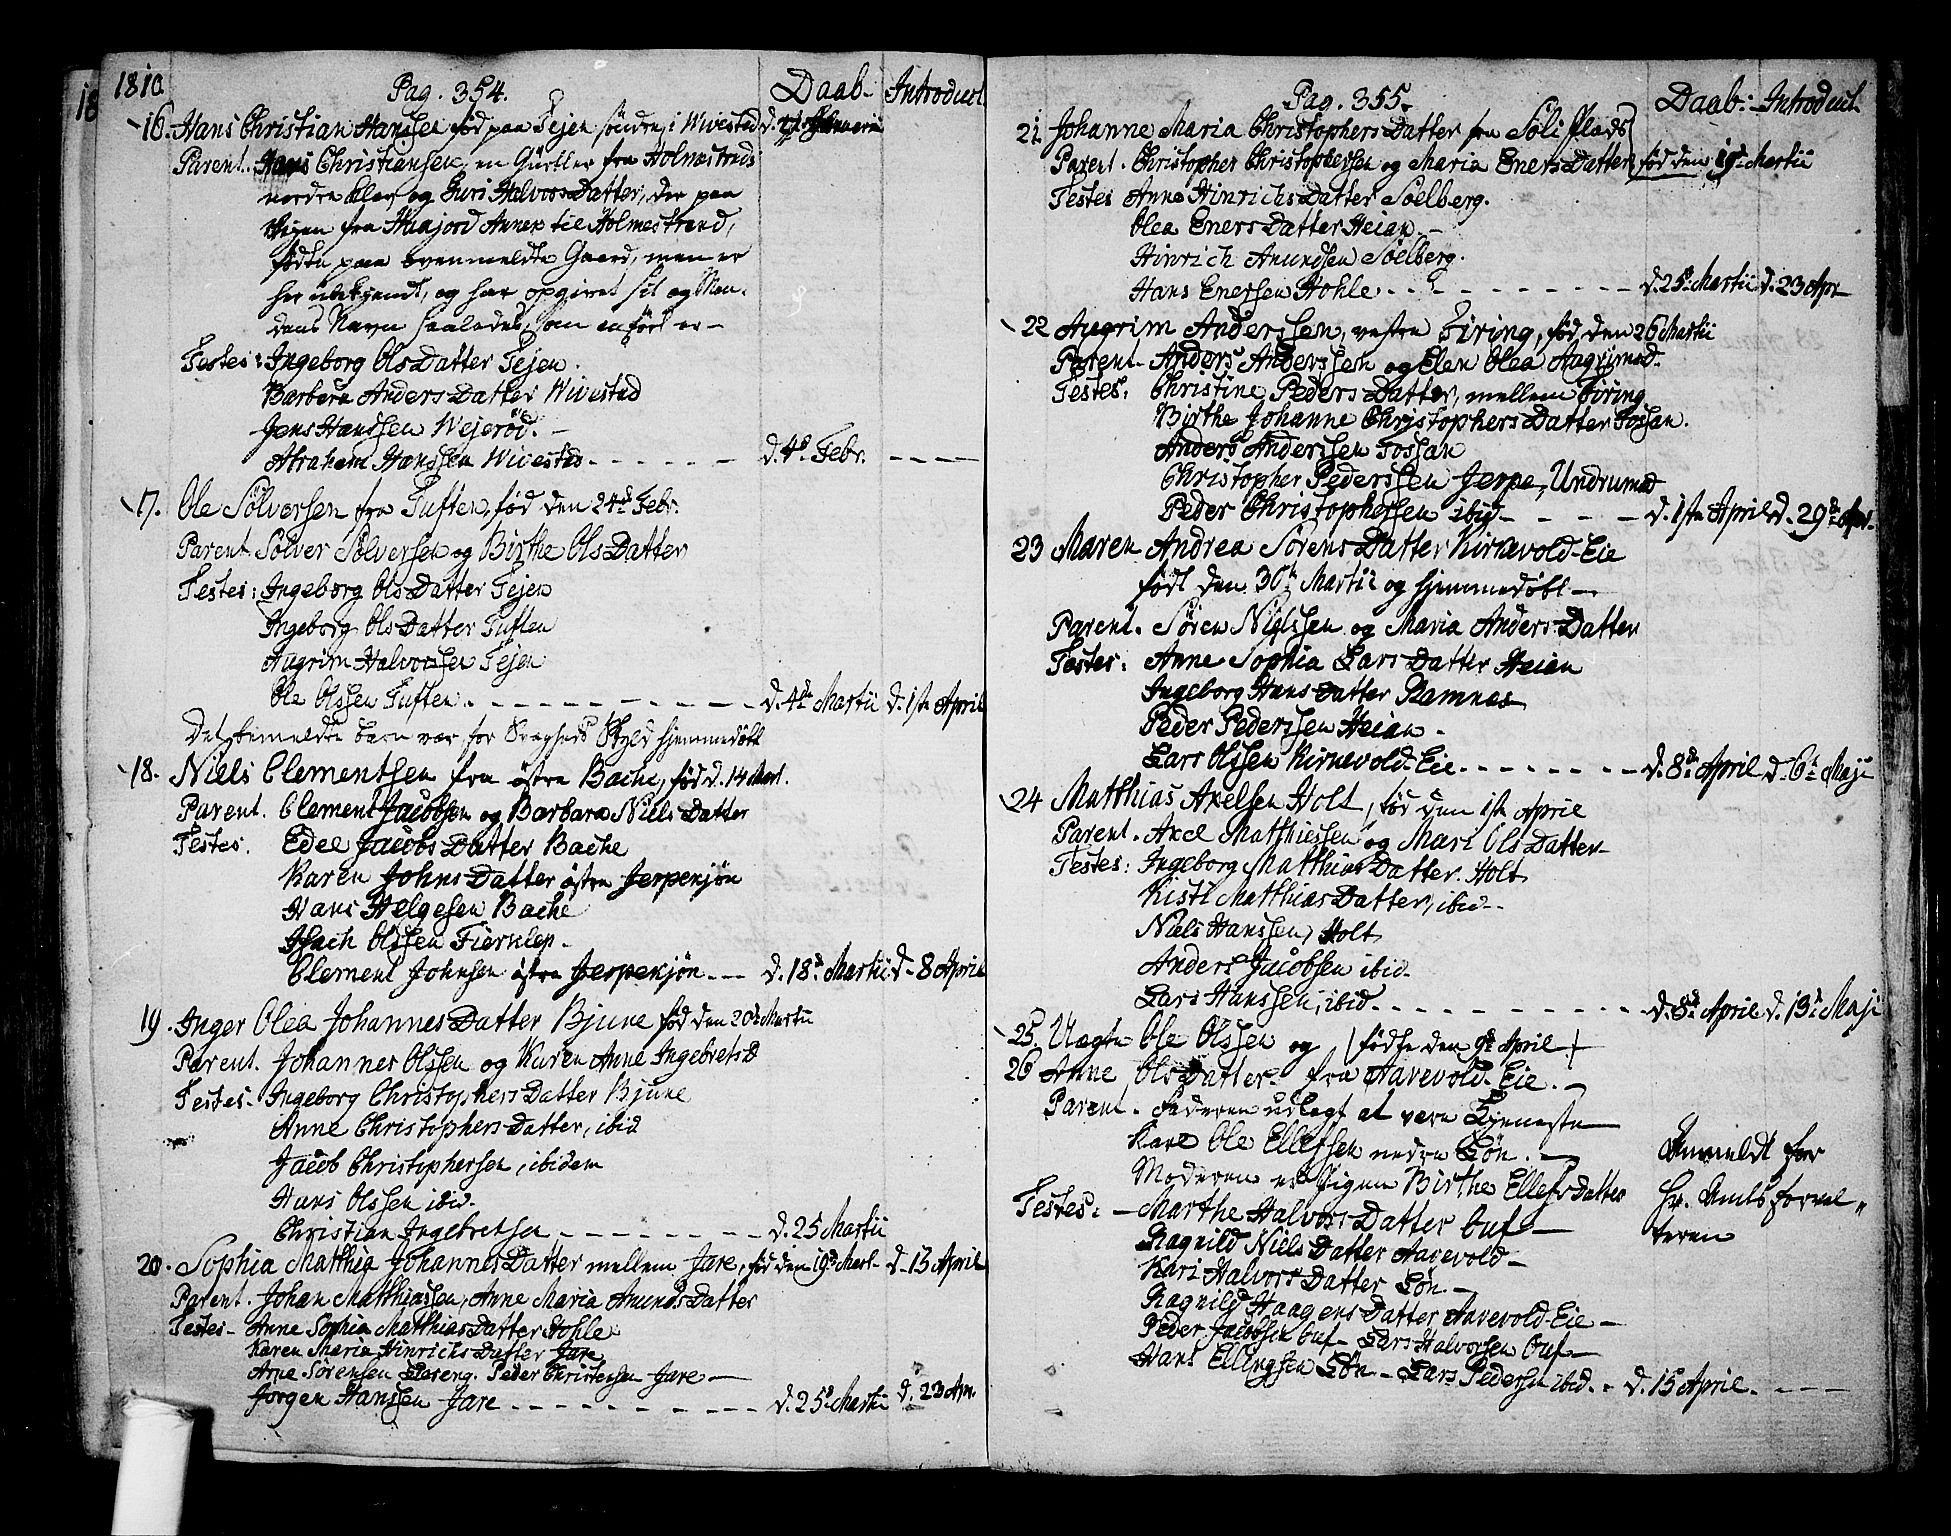 1810
Pag. 354.
Daab. Introduct.
16. Hans Christian Hanssen fød paa Tejen søndre, i Wivestad
Parent. Hans Christiansen, en Gürtler fra Holmestrands
nordre Eler og Guri HalvorsDatter, der paa
Annex til Holmestrand,
fødte paa ovenmeldte Gaard, men er
her ubekjendt, og har opgivet sit og Man-
dens Navn saaledes, som anført er -
Testes: Ingeborg OlsDatter Tejen.
Barbara AndersDatter Wivestad
Jens Hanssen Wejerød. -
Abrahem Hanssen Wivestad - - - - - - d. 4d Febr. - - - -
17. Ole Sølversen fra Tuften, fød den 24d Febr.
Parent. Sølver Sølversen og Birthe OlsDatter
Testes: Ingeborg OlsDatter Tejen
Ingeborg OlsDatter Tuften
Augrim Halvorssen Tejen
Ole Olssen Tuften. - - - - - - - - - d. 4d Martii d. 1ste April
Det bemeldte Barn var for Svagheds Skyld hjemmedøbt
18. Niels Clementsen fra østre Bache, fød d. 14 Mart.
Parent. Clement Jacobsen og Barbara NielsDatter
Testes. Edel JacobsDatter Bache
Karen JohnsDatter østre Jerpenjøn
Hans Helgesen Bache
Isach Olssen Fierklep -
Clement Johnsen østre Jerpenjøn - - - d. 18d Martii d. 8 April
19. Inger Olea JohannesDatter Bjune fød den 20d Martii
Parent. Johannes Olssen og Karen Anne IngebretsD
Testes - Ingeborg ChristophersDatter Bjune
Anne ChristophersDatter, ibid
Jacob Christophersen, ibidem
Hans Olssen ibid.
Christian Ingebretsen - - - - - - - - d. 25 Martii
20. Sophia Matthia JohannesDatter mellem Jare, fød den 19d Mart - d. 13 April
Parent. Johan Matthiassen, Anne Maria AmundsDatter
Testes - Anne Sophia MatthiasDatter Hohle
Karen Maria HinrichsDatter Jare
Arne Sørensen Peder Christensen Jare -
Jørgen Hanssen Jare - - - - - - - - - d. 25d Martii d. 23 Apr.
Pag. 355.
Daab. Introduct.
21. Johanne Maria ChristophersDatter fra Soli Plads
Parent. Christopher Christophersen og Maria EnersDatter fød den 19d Martii
Testes Anne HinrichsDatter Soelberg.
Olea EnersDatter Heian -
Hinrich Amundsen Soelberg.
Hans Enersen Hohle. - - - - - - - - d. 25d Martii d. 23 Apr
22 Augrim Anderssen, vestre Firing, fød den 26 Martii
Parent. Anders Anderssen og Elen Olea Augrimsd.
Testes. Christine PedersDatter, mellem Firing
Birthe Johanne ChristophersDatter Fossan.
Anders Anderssen Fossan
Christopher Pederssen Jerpe, Undrumsd
Peder Christophersen ibid - - - - d. 1ste April d. 29d Apr.
23 Maren Andrea SørensDatter Kirkevold-Eie
født den 30d Martii og hjemmedøbt -
Parent. Søren Nielssen og Maria AndersDatter
Testes: Anne Sophia LarsDatter Heian
Ingeborg HansDatter Ramnes
Peder Pederssen Heian -
Lars Olssen Kirkevold-Eie. - - - - - - d. 8d April d. 6d Maji
24 Matthias Axelsen Holt, fød den 1ste April
Parent. Axel Matthiessen og Mari OlsDatter -
Testes: Ingeborg MatthiasDatter Holt
Kisti MatthiasDatter, ibid. -
Niels Hanssen, Holt
Anders Jacobsen ibid.
Lars Hanssen, ibid. - - - - - - - - - d. 8d April d. 13d Maji
25. Uægte Ole Olssen og (fødte den 9d April)
26 Anne OlsDatter fra Aarevold-Eie. -
Parent. Faderen udlagt at være Tjeneste
Karl Ole Ellefssen nedre Løn. -
Moderen er Pigen Birthe EllefsDatter
Anmeldt for
Hr. Amtsforval-
teren
Testes. - Marthe HalvorsDatter Ouf -
Ragnild NielsDatter Aarevold -
Kari HalvorsDatter Løn. -
Ragnild HaagensDatter Aarevold-Eie -
Peder Jacobsen Ouf - Lars Halvorsen Ouf -
Hans Ellingsen Løn - Lars Pedersen ibid. - d. 15 April. - - - -